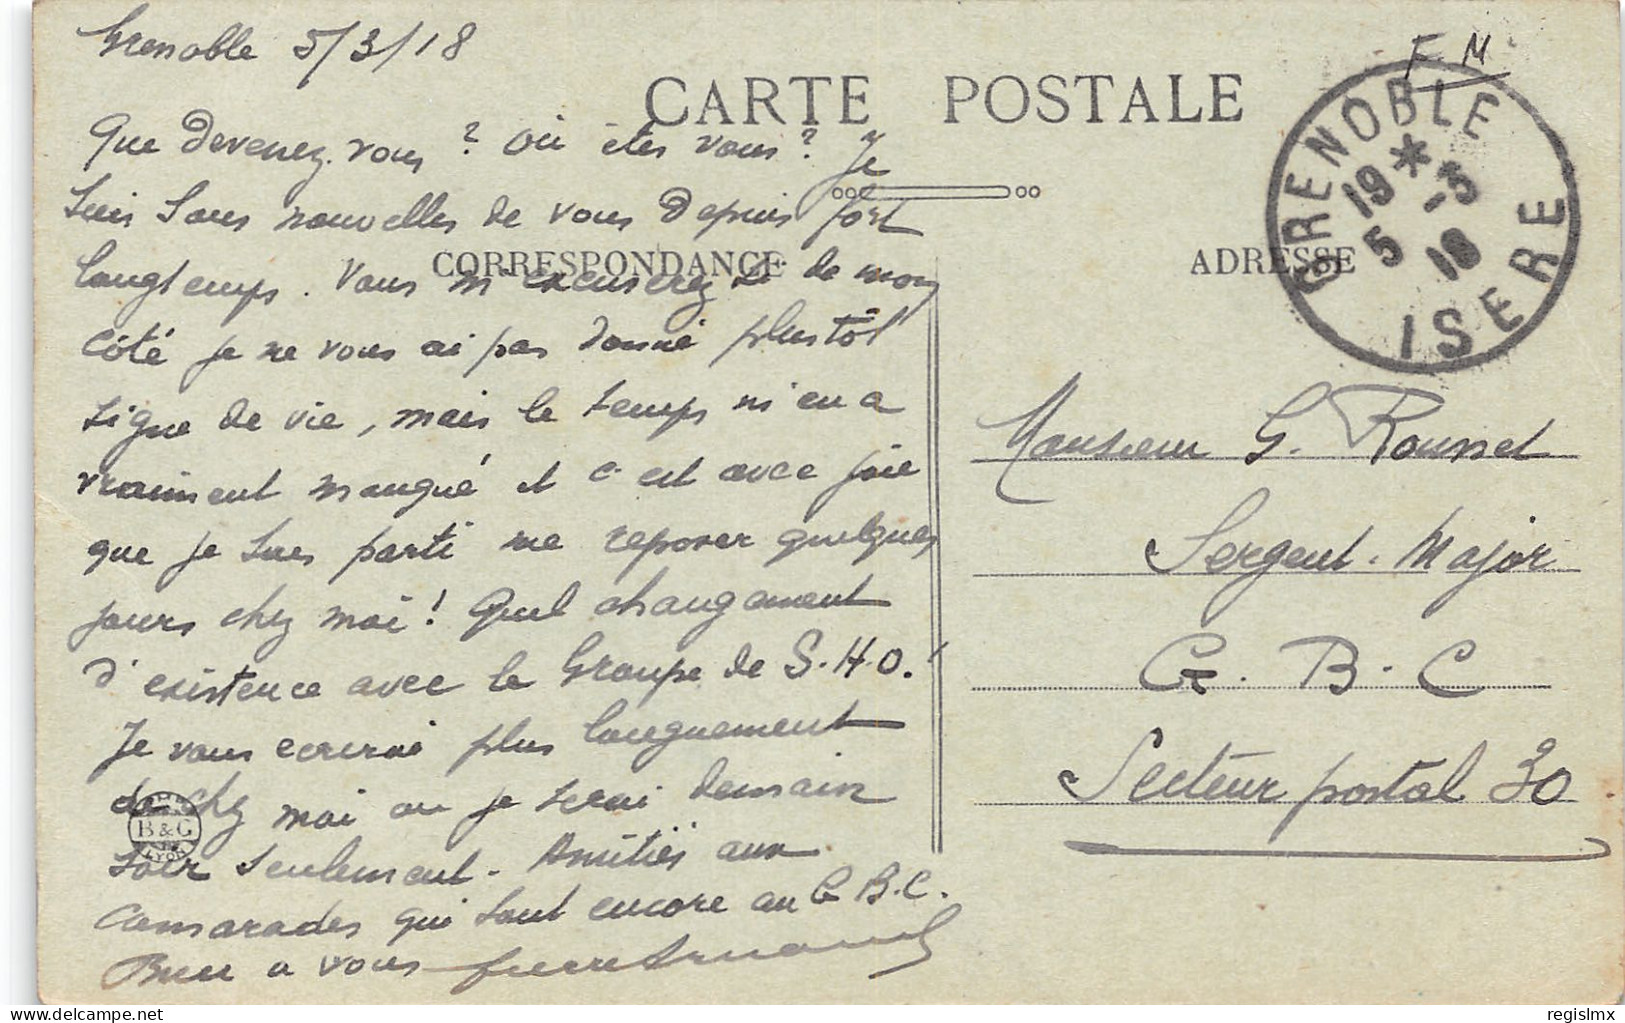 Grenoble 5/3/18
F M
CARTE POSTALE
GRENOBLE
19 * 5 -3 18
ISERE
CORRESPONDANCE
ADRESSE
Que devenez-vous ? Où êtes vous ? Je
suis sans nouvelles de vous depuis fort
longtemps. Vous m'excuserez si de mon
côté je ne vous ai pas donné plustôt
signe de vie, mais le temps m'en a
vraiment manqué et c'est avec joie
que je suis parti me reposer quelques
jours chez moi ! Quel changement
d'existence avec le Groupe de S.H.O. !
Je vous ecrirai plus longuement
de chez moi ou je serai demain
soir seulement. Amitiés aux
camarades qui sont encore au G B.C.
Bien a vous
B & G
LYON
Monsieur G. Rousset
Sergent-Major
G. B. C
Secteur postal 30
delcampe.net
regislmx